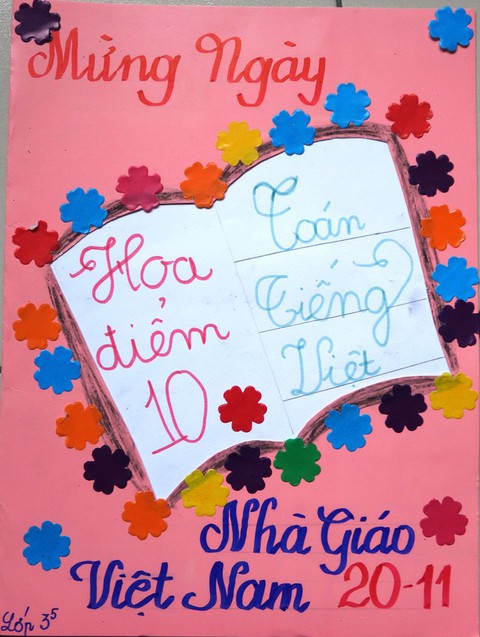 Mừng Ngày
Hoa
điểm
10
Toán
Tiếng
Việt
Nhà Giáo
Việt Nam 20-11
Lớp 3⁵